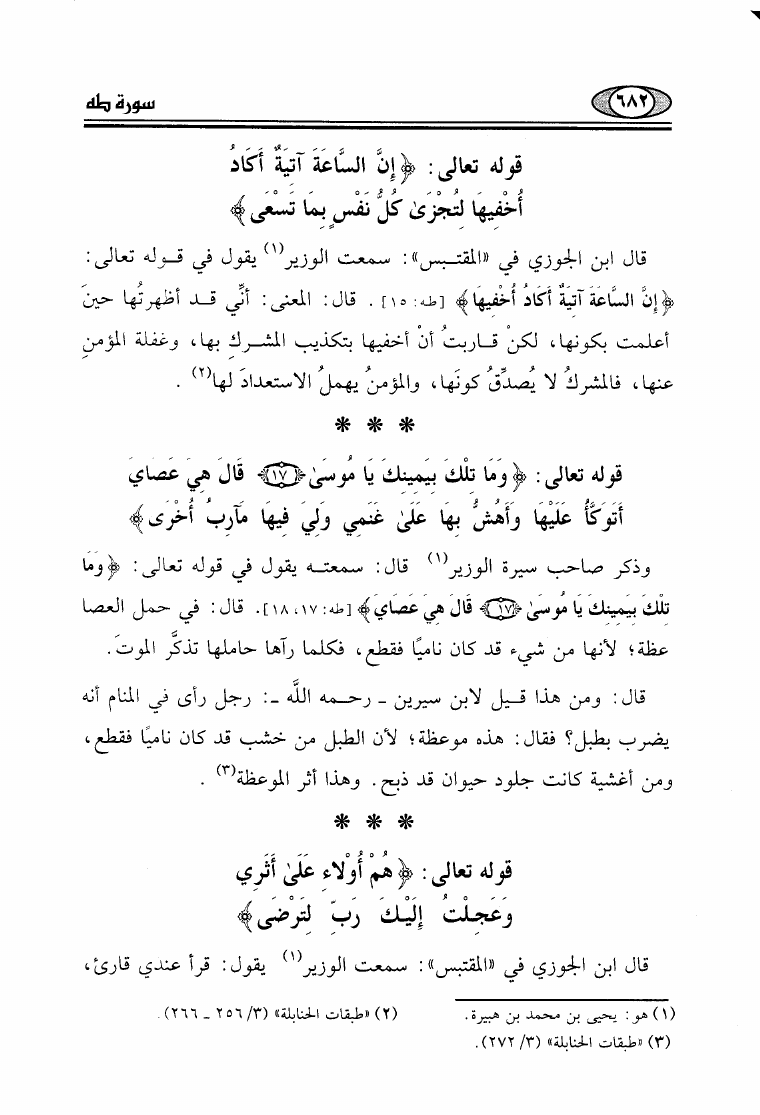 ٦٨٢ سورة طه
قوله تعالى: ﴿إِنَّ السَّاعَةَ آتِيَةٌ أَكَادُ
أُخْفِيهَا لِتُجْزَىٰ كُلُّ نَفْسٍ بِمَا تَسْعَى﴾
قال ابن الجوزي في «المقتبس»: سمعت الوزير(١) يقول في قوله تعالى:
﴿إِنَّ السَّاعَةَ آتِيَةٌ أَكَادُ أُخْفِيهَا﴾ [طه: ١٥]. قال: المعنى: أنِّي قد أظهرتُها حينَ
أعلمت بكونها، لكنْ قاربتُ أنْ أخفيها بتكذيب المشركِ بها، وغفلة المؤمنِ
عنها، فالمشركُ لا يُصدِّقُ كونَها، والمؤمنُ يهملُ الاستعدادَ لها(٢).
* * *
قوله تعالى: ﴿وَمَا تِلْكَ بِيَمِينِكَ يَا مُوسَىٰ ﴿١٧﴾ قَالَ هِيَ عَصَايَ
أَتَوَكَّأُ عَلَيْهَا وَأَهُشُّ بِهَا عَلَىٰ غَنَمِي وَلِيَ فِيهَا مَآرِبُ أُخْرَى﴾
وذكر صاحب سيرة الوزير(١) قال: سمعته يقول في قوله تعالى: ﴿وَمَا
تِلْكَ بِيَمِينِكَ يَا مُوسَىٰ ﴿١٧﴾ قَالَ هِيَ عَصَايَ﴾ [طه: ١٧، ١٨]. قال: في حمل العصا
عظة؛ لأنها من شيء قد كان ناميًا فقطع، فكلما رآها حاملها تذكَّر الموتَ.
قال: ومن هذا قيل لابن سيرين ـ رحمه اللَّه ـ: رجل رأى في المنام أنه
يضرب بطبل؟ فقال: هذه موعظة؛ لأن الطبل من خشب قد كان ناميًا فقطع،
ومن أغشية كانت جلود حيوان قد ذبح. وهذا أثر الموعظة(٣).
* * *
قوله تعالى: ﴿هُمْ أُوْلَاءِ عَلَىٰ أَثَرِي
وَعَجِلْتُ إِلَيْكَ رَبِّ لِتَرْضَى﴾
قال ابن الجوزي في «المقتبس»: سمعت الوزير(١) يقول: قرأ عندي قارئ،
(١) هو: يحيى بن محمد بن هبيرة. (٢) «طبقات الحنابلة» (٣/ ٢٥٦ ـ ٢٦٦).
(٣) «طبقات الحنابلة» (٣/ ٢٧٢).